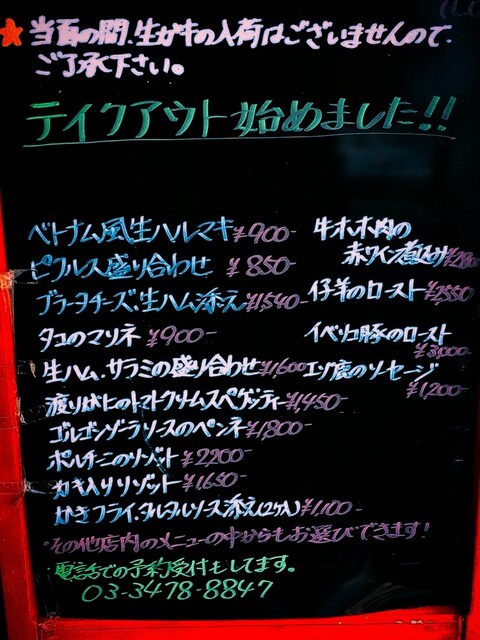 ★当面の間、生ガキの入荷はございませんので、
ご了承下さい。
テイクアウト始めました!!
ベトナム風生ハルマキ ¥900-
ピクルス盛り合わせ ¥850-
ブラータチーズ、生ハム添え ¥1,540-
タコのマリネ ¥900-
生ハム、サラミの盛り合わせ ¥1,600-
渡りガニのトマトクリームスペゲッティー ¥1,450-
ゴルゴンゾーラソースのペンネ ¥1,800-
ポルチーニのリゾット ¥2,200-
カキ入りリゾット ¥1,650-
かきフライ、タルタルソース添え(2ヶ入) ¥1,100-
牛ホホ肉の
赤ワイン煮込み
仔羊のロースト ¥2,550-
イベリコ豚のロースト
¥3,000-
エゾ鹿のソーセージ
¥1,200-
・その他店内のメニューの中からもお選びできます!
・電話での予約受付もしてます。
03-3478-8847